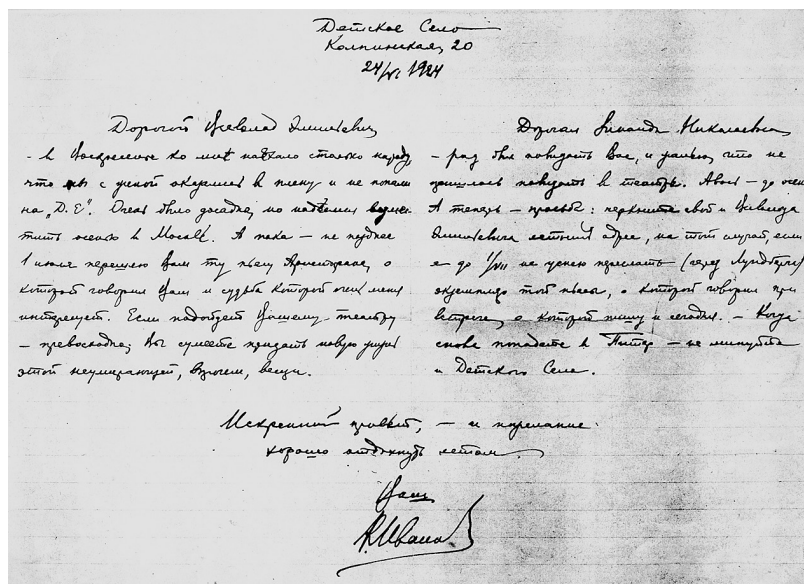 Детское Село
Колпинская, 20
24/VI 1924
Дорогой Всеволод Эмильевич
- в Воскресенье ко мне наѣхало столько народу,
что мы с женой оказались в плену и не попали
на „Д. Е“. Очень было досадно, но надѣемся
осенью в Москвѣ. А пока — не позднее
1 июля перешлю Вам ту пьесу Аристофана, о
которой говорил Вам и судьба которой очень меня
интересует. Если подойдет Вашему театру
— превосходно; Вы сумеете придать новую
этой неумирающей, впрочем, вещи.
Дорогая Зинаида Николаевна
— рад был повидать Вас, и жалею, что не
пришлось повидать в театрѣ. Авось — до осени.
А теперь — просьба: черкните свой и Всеволода
Эмильевича летний адрес, на тот случай, если
я до 1/VII не успею прислать (через Лундберга)
экземпляр той пьесы, о которой говорил при
встрече, о которой пишу и сегодня. — Когда
снова попадете в Питер — не минуйте
и Детского Села.
Искренний привѣт, — и пожелание
хорошо отдохнуть летом.
Ваш
Р. Иванов